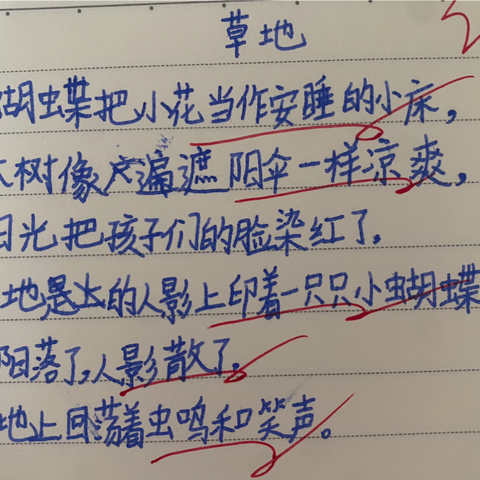 草地
胡蝶把小花当作安睡的小床,
树像遍遮阳伞一样凉爽,
日光把孩子们的脸染红了。
地是出的人影上印着一只只小蝴蝶
阳落了,人影散了。
地上回荡着虫鸣和笑声。